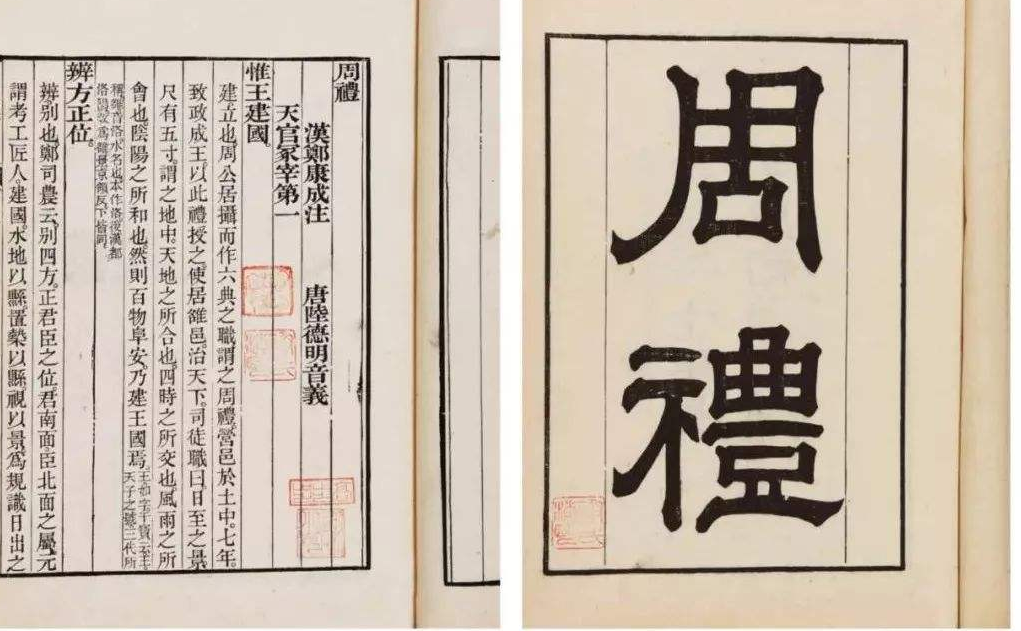 周禮
漢鄭康成注 唐陸德明音義
天官冢宰第一
惟王建國。
建立也。周公居攝而作六典之職。謂之周禮。營邑於土中。七年。
致政成王。以此禮授之。使居雒邑。治天下。司徒職曰。日至之景。
尺有五寸。謂之地中。天地之所合也。四時之所交也。風雨之所
會也。陰陽之所和也。然則百物阜安。乃建王國焉。
辨方正位。
辨。別也。鄭司農云。別四方。正君臣之位。君南面。臣北面之屬。元
謂考工匠人。建國。水地以縣。置槷以縣。視以景。爲規。識日出之
周禮